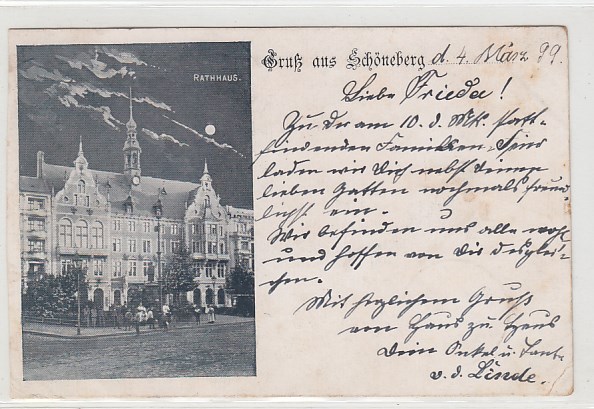 RATHHAUS.
Gruß aus Schöneberg d. 4. März 99.
Liebe Frieda!
Zu der am 10. d. Mts. statt-
findenden Familien-
laden wir Dich nebst Deinem
lieben Gatten nochmals freund-
lichst ein.
Wir befinden uns alle wohl
und hoffen von Dir desglei-
chen.
Mit herzlichem Gruss
von Haus zu Haus
Dein Onkel u. Tante
v. d. Linde.